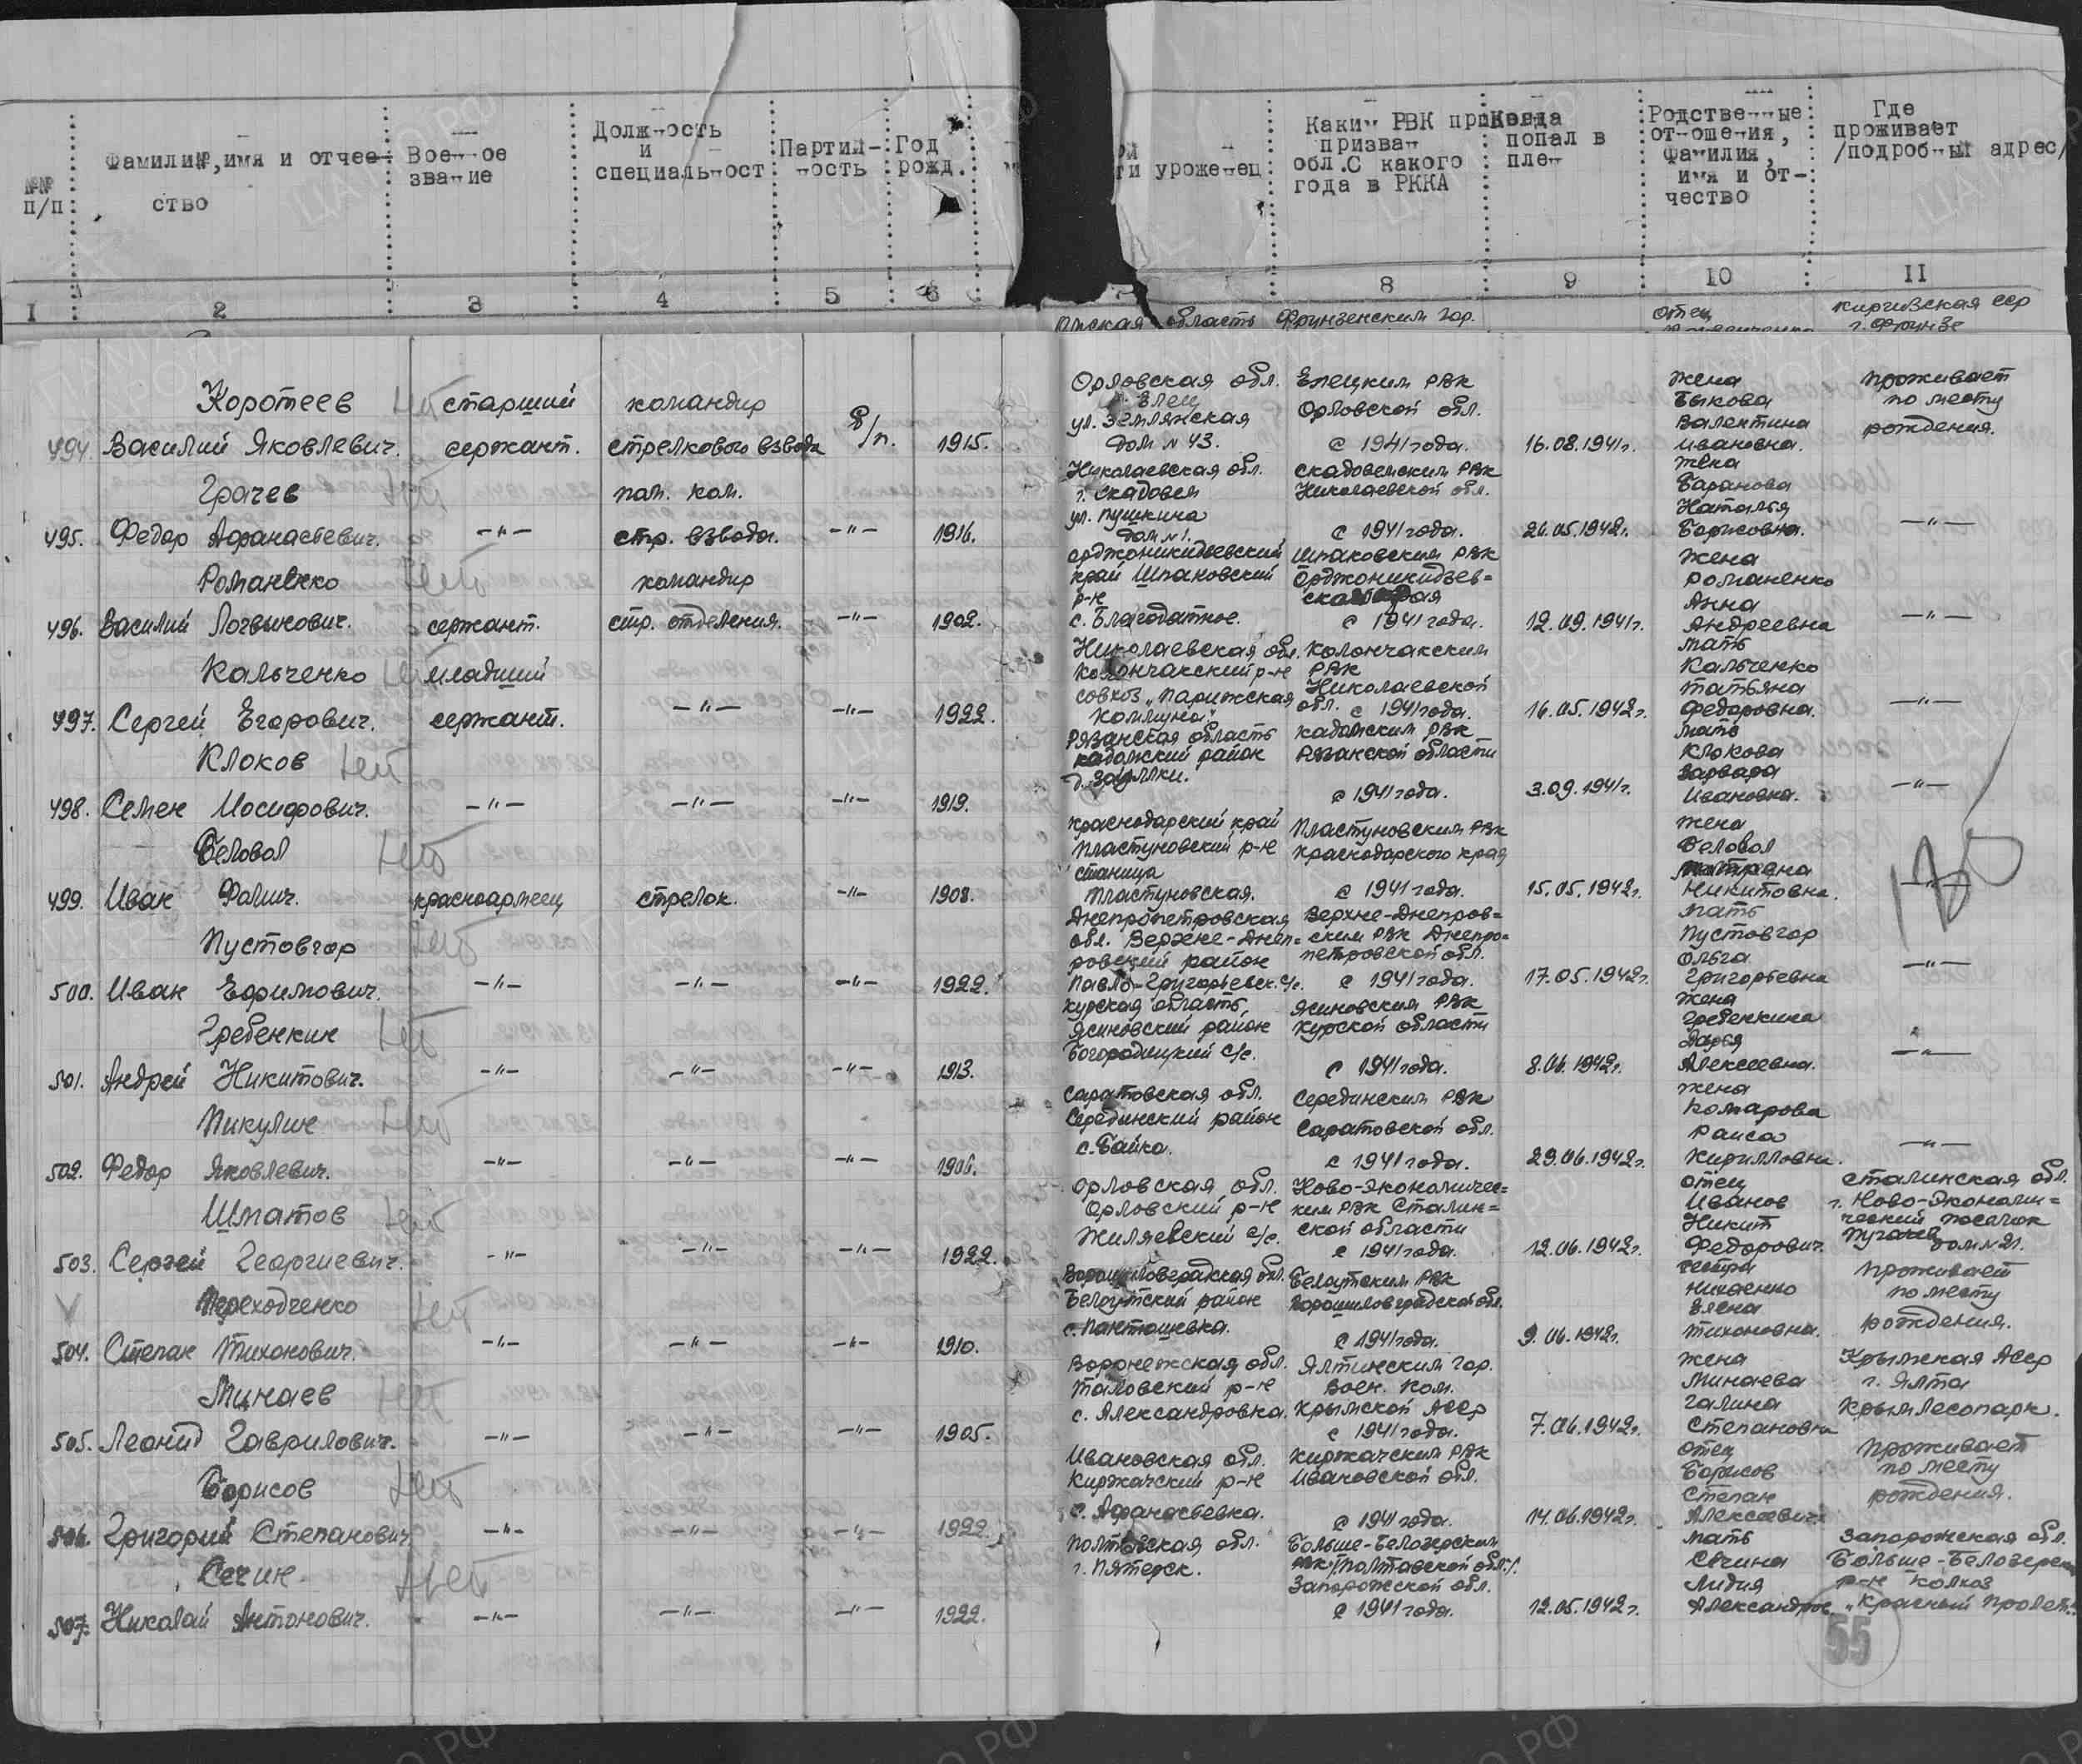 №№ п/п
Фамилия, имя и отчество
Военное звание
Должность и специальност
Партийность
Год рожд.
уроженец
Каким РВК призван
обл. С какого года в РККА
Когда попал в плен
Родственные отношения, фамилия, имя и отчество
Где проживает /подробный адрес/
1 2 3 4 5 6 8 9 10 11
область Фрунзенским гор.
отец
Киргизская ССР
г. Фрунзе
494. Коротеев Василий Яковлевич.
Нет
старший сержант.
командир стрелкового взвода
б/п.
1915.
Орловская обл.
г. Елец
ул. Землянская
дом № 43.
Елецким РВК
Орловской обл.
с 1941 года.
16.08.1941г.
жена
Быкова
Валентина
Ивановна.
проживает
по месту
рождения.
495. Грачев Федор Афанасьевич.
Нет
—"—
пом. ком.
стр. взвода.
—"—
1916.
Николаевская обл.
г. Скадовск
ул. Пушкина
дом № 1.
Скадовским РВК
Николаевской обл.
с 1941 года.
26.05.1942г.
жена
Баранова
Наталья
Борисовна.
—"—
496. Романенко Василий Логвинович.
Нет
сержант.
командир
стр. отделения.
—"—
1902.
Орджоникидзевский
край Шпаковский
р-н
с. Благодатное.
Шпаковским РВК
Орджоникидзев=
ского края
с 1941 года.
12.09.1941г.
жена
Романенко
Анна
Андреевна
—"—
497. Кальченко Сергей Егорович.
Нет
младший сержант.
—"—
—"—
1922.
Николаевская обл.
Колончакский р-н
совхоз „Парижская
коммуна".
Колончакским
РВК
Николаевской
обл. с 1941 года.
16.05.1942г.
мать
Кальченко
Татьяна
Федоровна.
—"—
498. Клоков Семен Иосифович.
Нет
—"—
—"—
—"—
1919.
Рязанская область
Кадомский район
Кадомским РВК
Рязанской области
с 1941 года.
3.09.1941г.
мать
Клокова
Варвара
Ивановна.
—"—
499. Беловол Иван Фомич.
Нет
красноармеец
стрелок.
—"—
1908.
Краснодарский край
Пластуновский р-н
станица
Пластуновская.
Пластуновским РВК
Краснодарского края
с 1941 года.
15.05.1942г.
жена
Беловол
Матрена
Никитовна.
—"—
500. Пустовгор Иван Ефимович.
Нет
—"—
—"—
—"—
1922.
Днепропетровская
обл. Верхне-Днеп=
ровский район
Павло-Григорьевск. с/с.
Верхне-Днепров=
ским РВК Днепро=
петровской обл.
с 1941 года.
17.05.1942г.
мать
Пустовгор
Ольга
Григорьевна
—"—
501. Гребенкин Андрей Никитович.
Нет
—"—
—"—
—"—
1913.
Курская область,
Ясиновский район
Богородицкий с/с.
Ясиновским РВК
Курской области
с 1941 года.
8.06.1942г.
жена
Гребенкина
Дарья
Алексеевна.
—"—
502. Пикулин Федор Яковлевич.
Нет
—"—
—"—
—"—
1906.
Саратовская обл.
Серединский район
с. Байка.
Серединским РВК
Саратовской обл.
с 1941 года.
29.06.1942г.
жена
Комарова
Раиса
Кирилловна.
—"—
503. Шматов Сергей Георгиевич.
Нет
—"—
—"—
—"—
1922.
Орловская обл.
Орловский р-н
Жиляевский с/с.
Ново-Экономичес=
ким РВК Сталин=
ской области
с 1941 года.
12.06.1942г.
отец
Иванов
Никит
Федорович.
Сталинская обл.
г. Ново-Экономи=
ческий поселок
дом № 21.
504. Переходченко Степан Тихонович.
Нет
—"—
—"—
—"—
1910.
Ворошиловградская обл.
Белоутский район
с. Пантюшевка.
Белоутским РВК
Ворошиловградской обл.
с 1941 года.
9.06.1942г.
сестра
Елена
Тихоновна.
проживает
по месту
рождения.
505. Минаев Леонид Гаврилович.
Нет
—"—
—"—
—"—
1905.
Воронежская обл.
Таловский р-н
с. Александровка.
Ялтинским гор.
воен. ком.
Крымской АССР
с 1941 года.
7.06.1942г.
жена
Минаева
Галина
Степановна
Крымская АССР
г. Ялта
Крымлесопарк.
506. Борисов Григорий Степанович.
Нет
—"—
—"—
—"—
1922.
Ивановская обл.
Киржачский р-н
с. Афанасьевка.
Киржачским РВК
Ивановской обл.
с 1941 года.
14.06.1942г.
отец
Борисов
Степан
Алексеевич
проживает
по месту
рождения.
507. Сечин Николай Антонович.
Нет
—"—
—"—
—"—
1922.
Полтавская обл.
г. Пятерск.
Больше-Белозерским
РВК /Полтавской обл./.
Запорожской обл.
с 1941 года.
12.05.1942г.
мать
Сечина
Лидия
Александров.
Запорожская обл.
Больше-Белозерск
р-н колхоз
„Красный пролет."
55